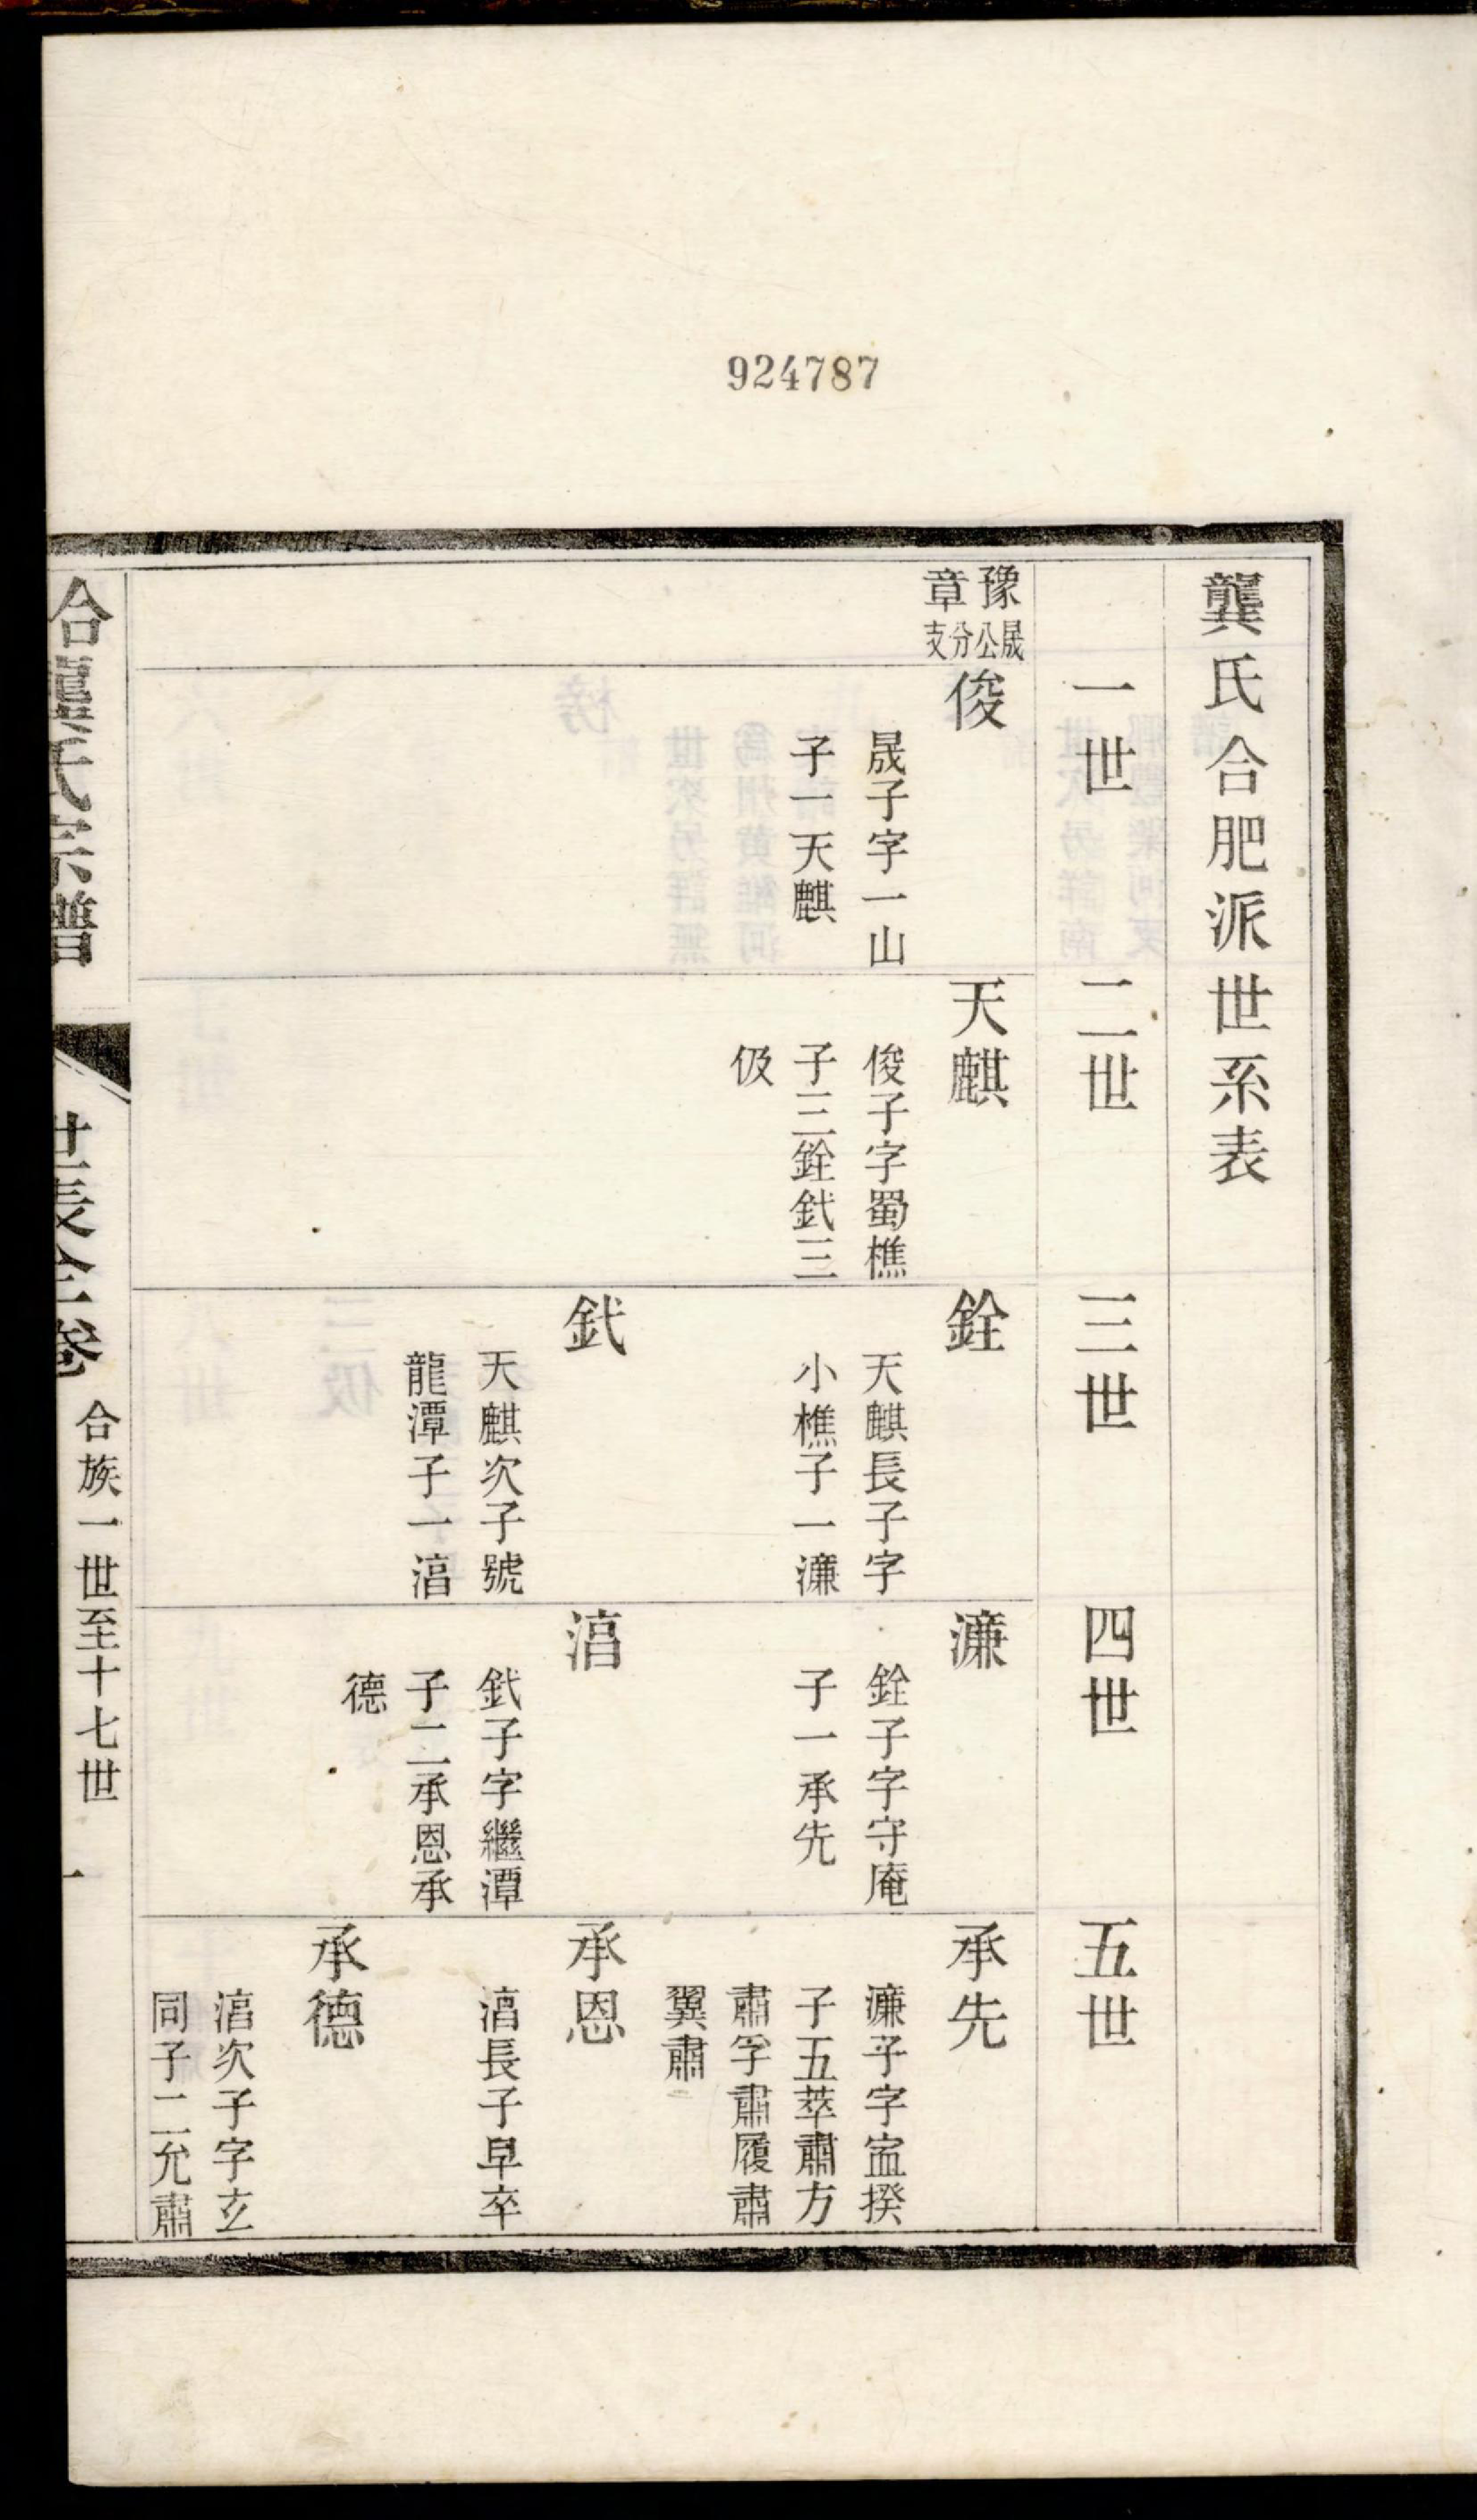 924787
龔氏合肥派世系表
一世
二世
三世
四世
五世
豫章
晟公分支
俊
晟子字一山
子一天麒
天麒
俊子字蜀樵
子三銓鉽三
伋
銓
天麒長子字
小樵子一濂
鉽
天麒次子號
龍潭子一湻
濂
銓子字守庵
子一承先
湻
鉽子字繼潭
子二承恩承
德
承先
濂子字宙揆
子五萃肅方
肅孚肅履肅
翼肅
承恩
湻長子早卒
承德
湻次子字玄
同子二允肅
合龔氏宗譜
世表全卷
合族一世至十七世
一